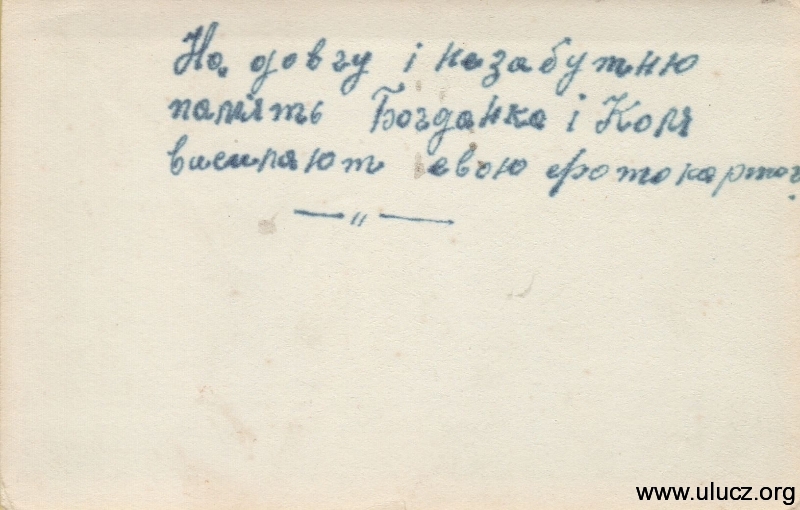 На довгу і незабутню
память Богданка і Коля
висиляют свою фотокарточ
—〃—
www.ulucz.org